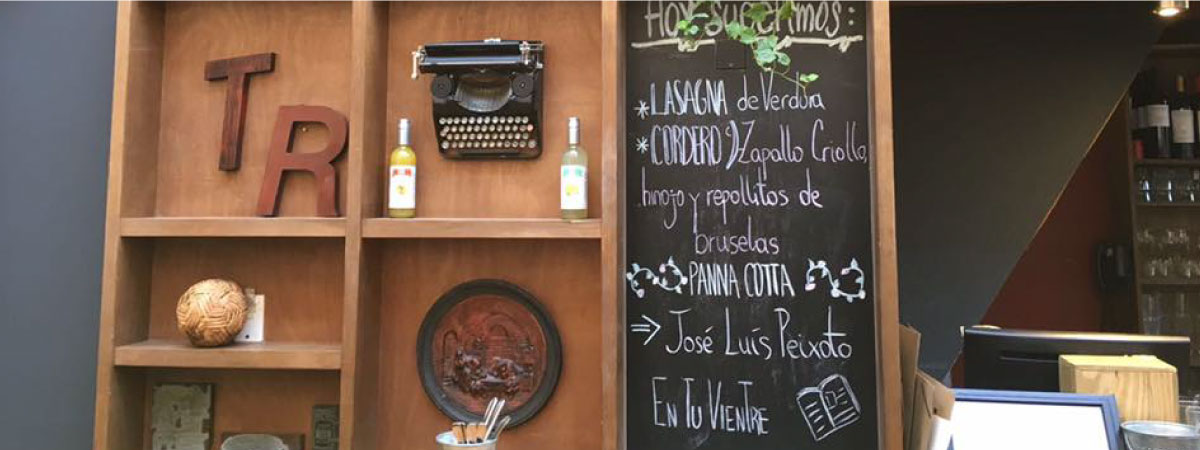 T
R
Hoy sugerimos:
*LASAGNA de Verdura
*CORDERO Zapallo Criollo,
hinojo y repollitos de
bruselas
PANNA COTTA
⇒ José Luís Peixoto
EN TU VIENTRE